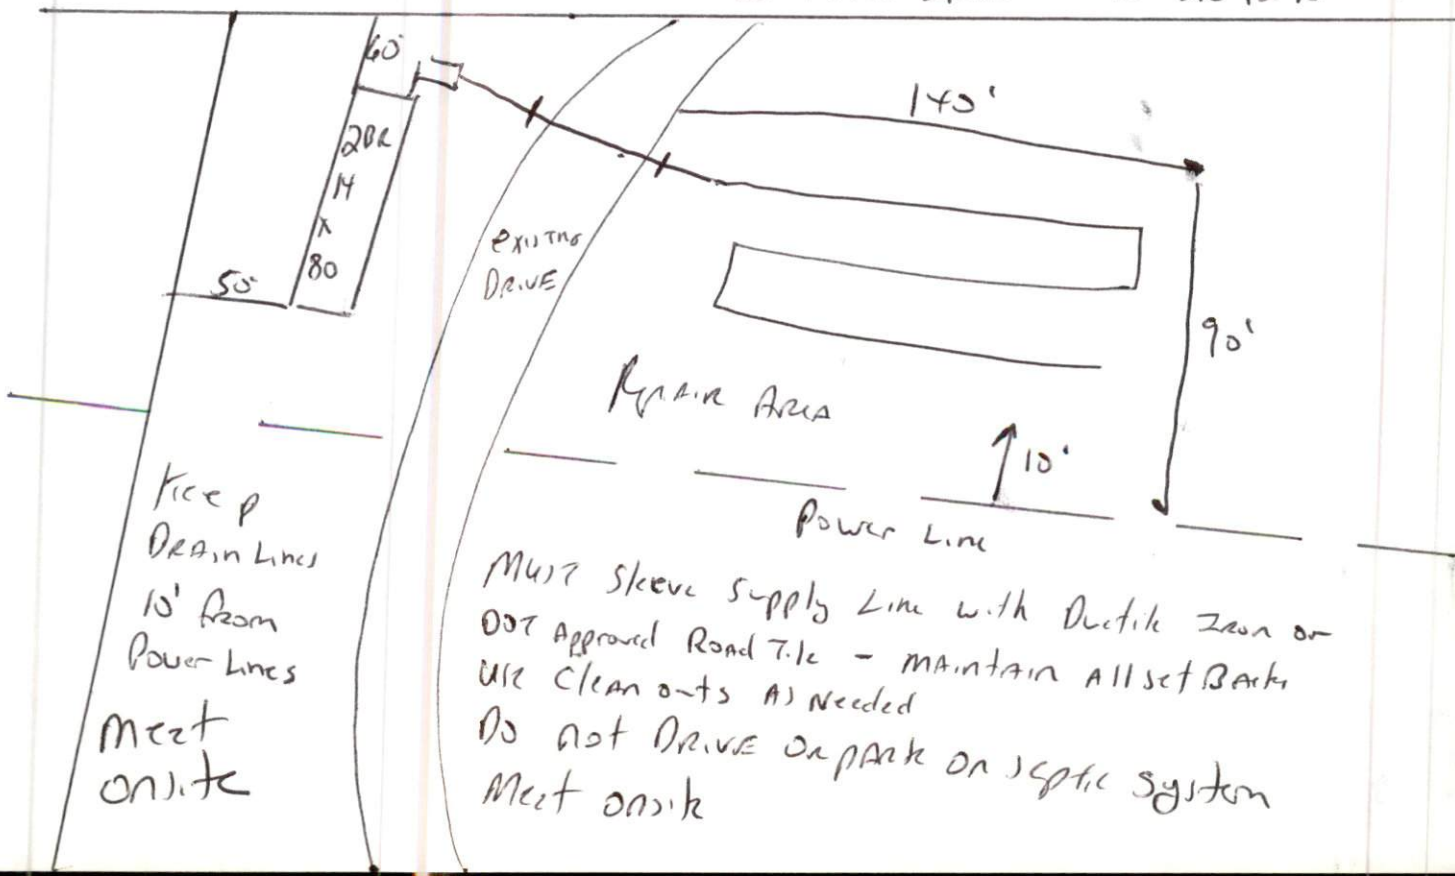 60'
140'
2BR
14
x
80
existing
Drive
50'
90'
Repair Area
10'
Power Line
Keep
Drain Lines
10' from
Power Lines
Meet
onsite
Must Sleeve Supply Line with Ductile Iron or
DOT Approved Road Tile - Maintain All setBacks
Use Clean outs As Needed
Do not Drive or park on septic system
Meet onsite